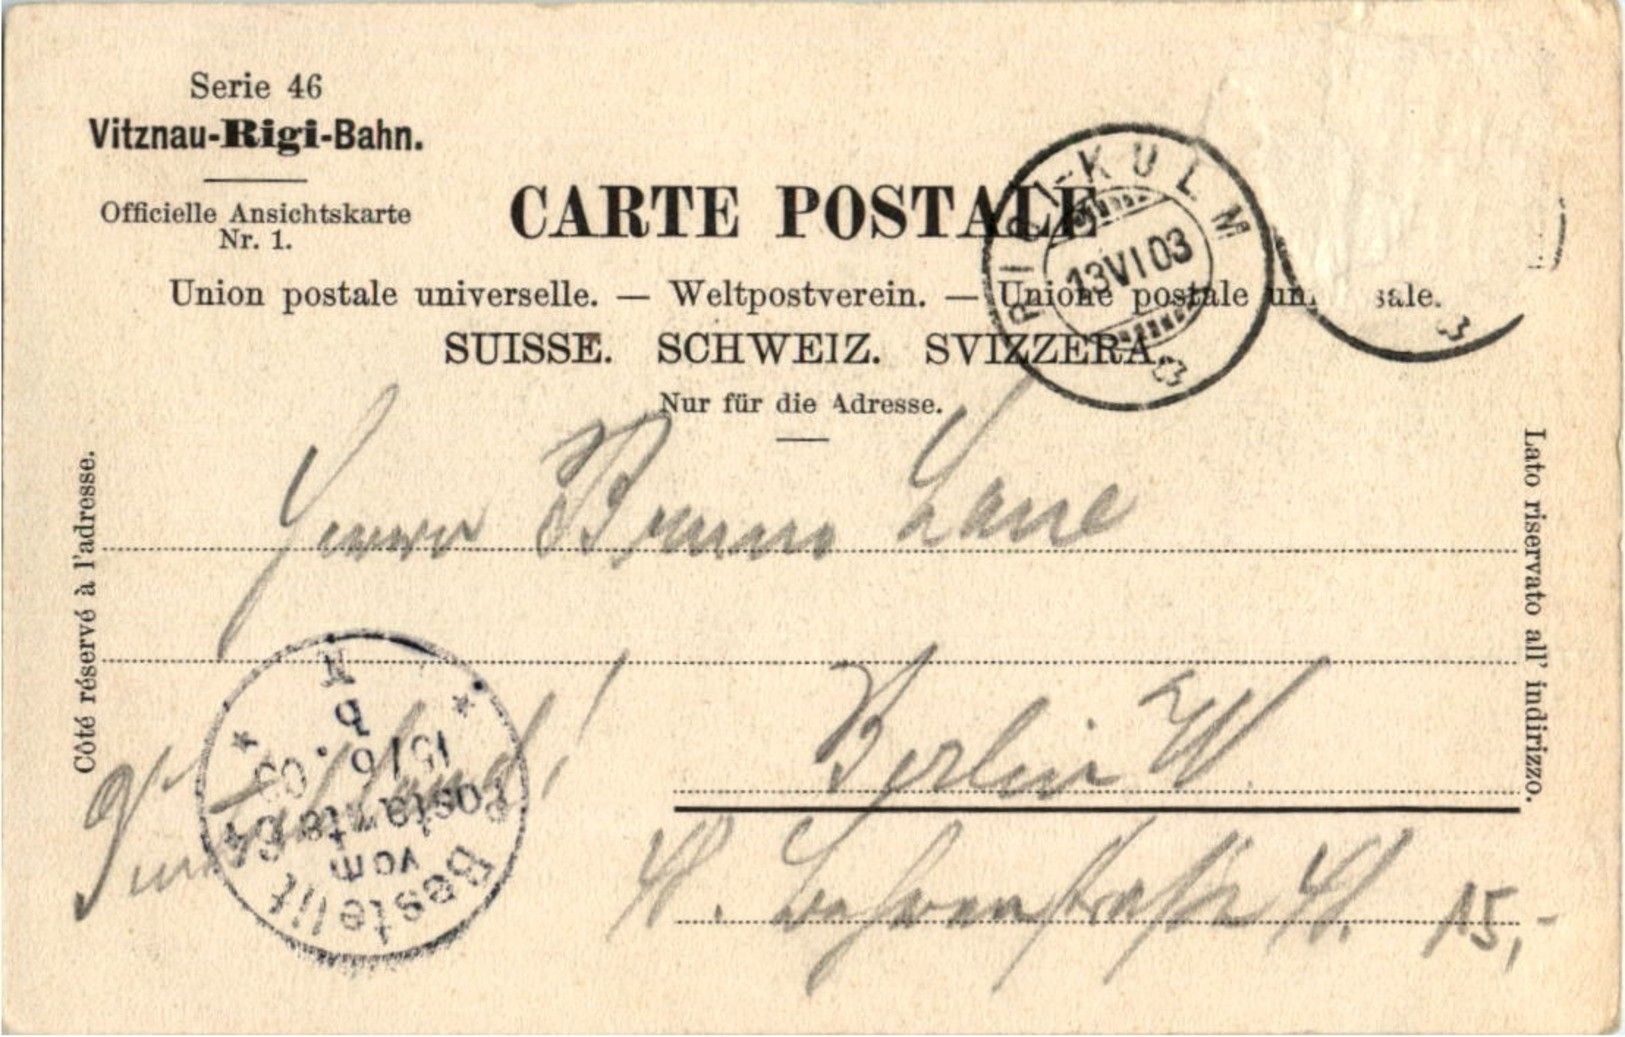 Serie 46
Vitznau-Rigi-Bahn.
Officielle Ansichtskarte
Nr. 1.
CARTE POSTALE
Union postale universelle. — Weltpostverein. — Unione postale un sale.
SUISSE. SCHWEIZ. SVIZZERA.
Nur für die Adresse.
RIGI-KULM
13 VI 03
Côté réservé à l'adresse.
Lato riservato all' indirizzo.
Herrn Bruno
Berlin W.
Bestellt
vom
Postamte
15/6
03.
15,-